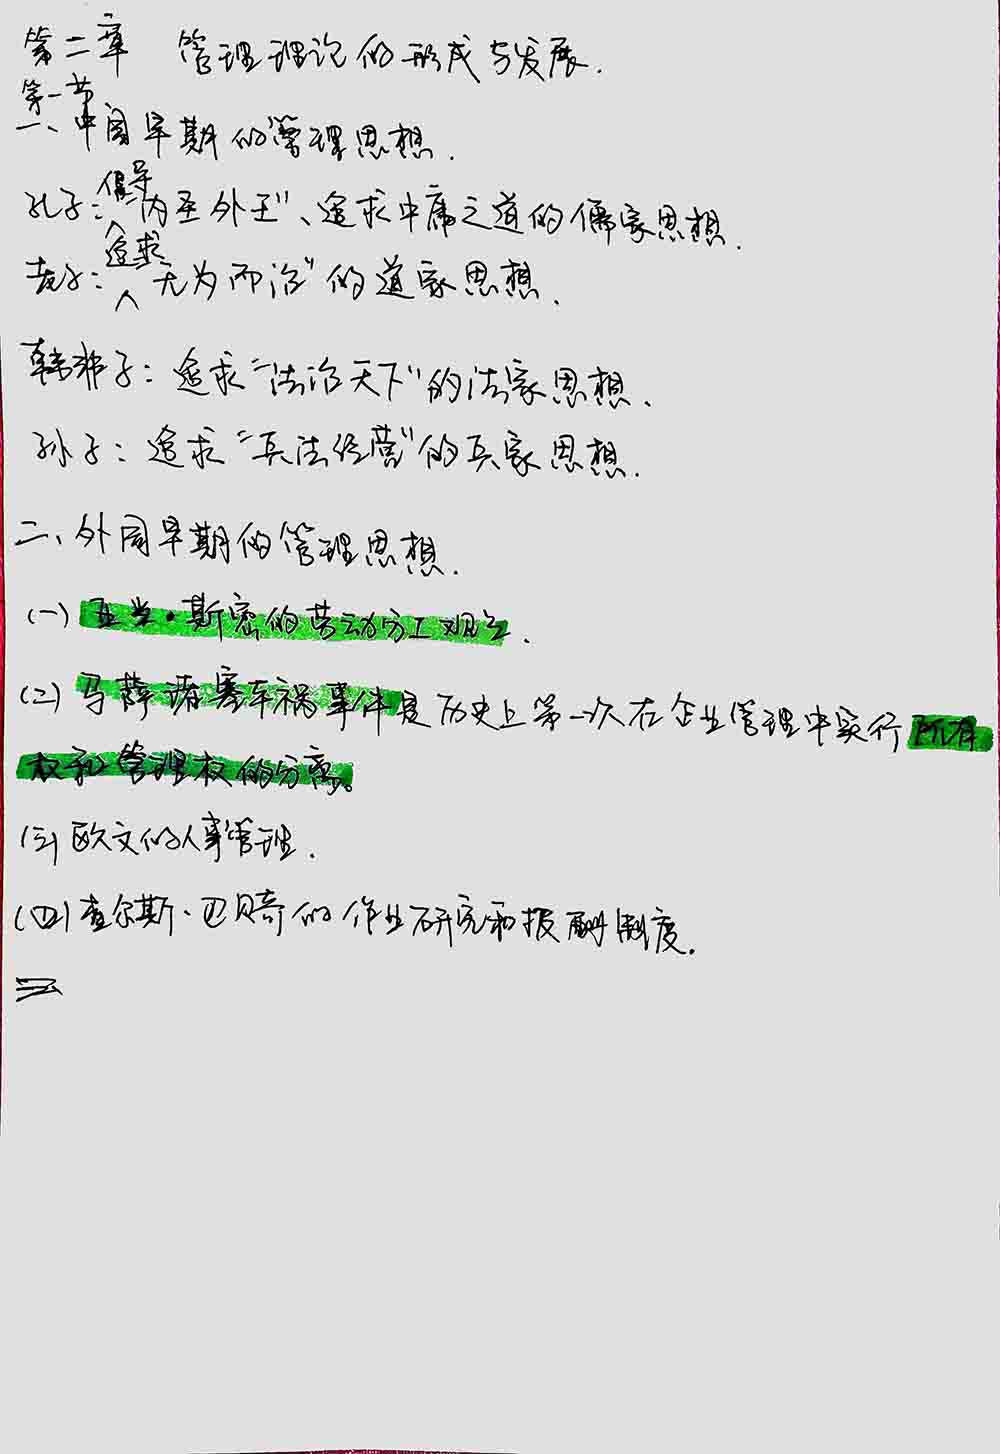 第二章 管理理论的形成与发展.
第一节
一、中国早期的管理思想.
孔子:倡导"内圣外王"、追求中庸之道的儒家思想.
老子:追求"无为而治"的道家思想.
韩非子:追求"法治天下"的法家思想.
孙子:追求"兵法经营"的兵家思想.
二、外国早期的管理思想.
(一)亚当·斯密的劳动分工观点.
(二)马萨诸塞车祸事件是历史上第一次在企业管理中实行所有
权和管理权的分离。
(三)欧文的人事管理.
(四)查尔斯·巴贝奇的作业研究和报酬制度.
三